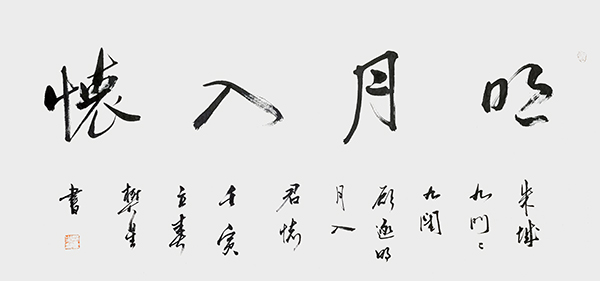 明月入懷
朱城
九門〻
九閨
願逐明
月入
君懷
壬寅
立春
樊星
書